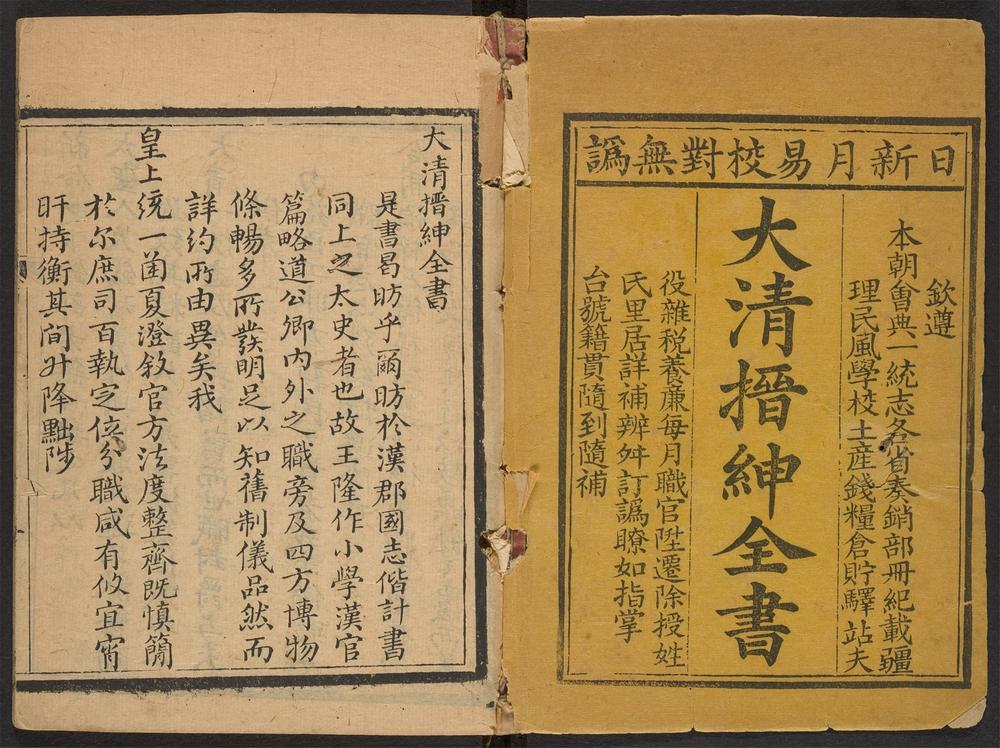 日新月易校對無譌
欽遵
本朝會典一統志各省奏銷部冊紀載疆
理民風學校土産錢糧倉貯驛站夫
大清搢紳全書
役雜税養廉每月職官陞遷除授姓
民里居詳補辨舛訂譌瞭如指掌
台號籍貫隨到隨補
大清搢紳全書
是書曷昉乎爾昉於漢郡國志偕計書
同上之太史者也故王隆作小學漢官
篇略道公卿內外之職旁及四方博物
條暢多所發明足以知舊制儀品然而
詳約所由異矣我
皇上統一函夏澄敘官方法度整齊既慎簡
於尓庶司百執定位分職咸有攸宜宵
旰持衡其間升降黜陟